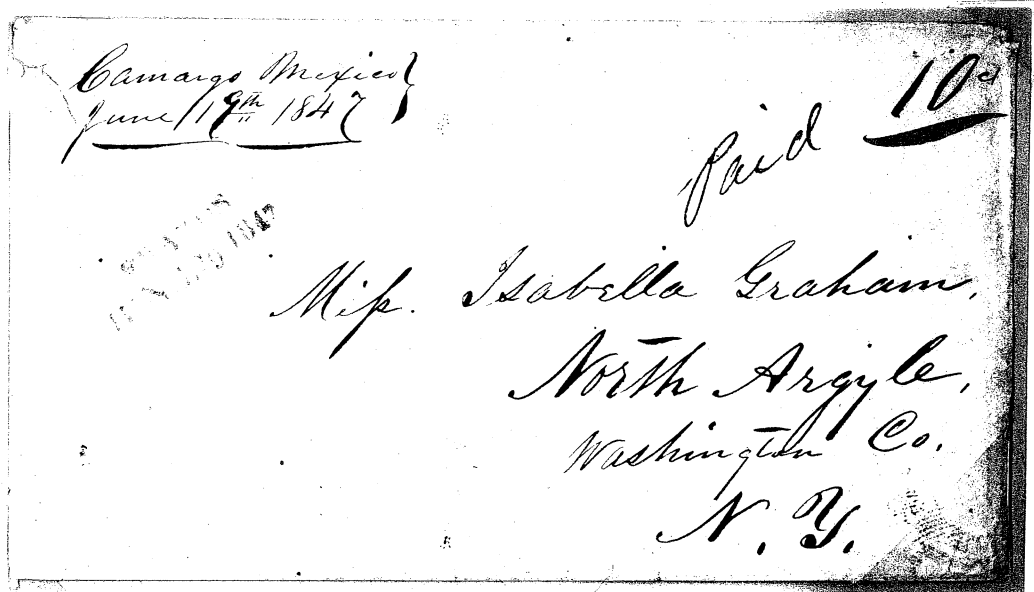 Camargo Mexico
June 19th 1847
10c
Paid
1847
Miſs. Isabella Graham,
North Argyle,
Washington Co.
N. Y.